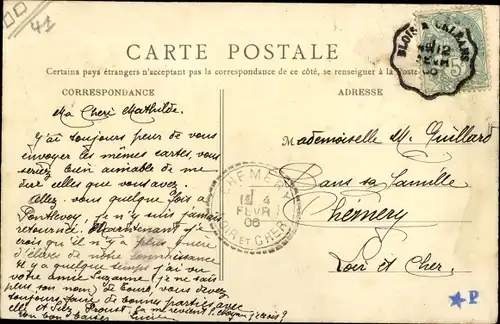 41
CARTE POSTALE
Certains pays étrangers n'acceptant pas la correspondance de ce côté, se renseigner à la Poste
CORRESPONDANCE
ADRESSE
BLOIS
12
5
Ma Cheri Mathilde.
J'ai toujours peur de vous
envoyer les mêmes cartes, vous
seriez bien aimable de me
dire celles que vous avez.
Allez. vous quelque fois a
Pontlevoy. je n'y suis jamais
retournée. Maintenant j'e
crois qu'il n'y a plus guère
d'élèves de notre connaissance
Il y a quelque temps j'ai vu
votre amie Suzanne (je ne sais
plus son nom) de Tours, vous devez
toujours faire de bonnes parties avec
elle et
bon baiser Lucie
Mademoiselle M. Guillard
Dans sa famille
Chémery
Loir et Cher.
CHEMERY
4
FEVR
06
LOIR ET CHER
P